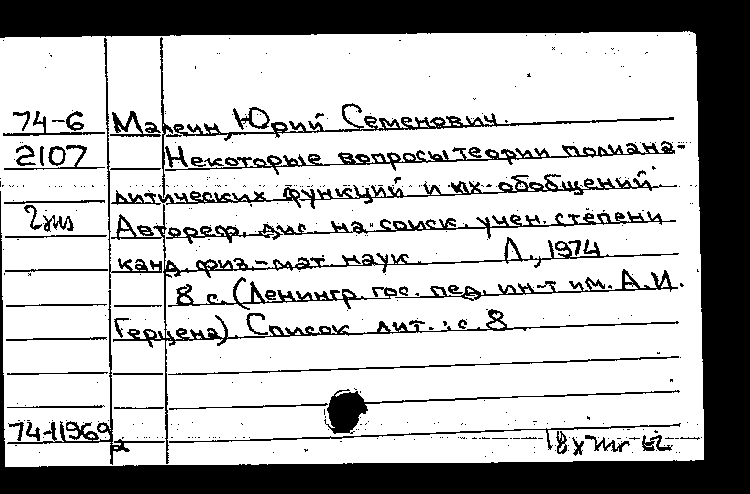 74-6 Малеин, Юрий Семенович.
2107 Некоторые вопросы теории полиана-
литических функций и их обобщений.
2 экз Автореф. дис. на соиск. учен. степени
канд. физ.-мат. наук. Л., 1974
8 с. (Ленингр. гос. пед. ин-т им. А.И.
Герцена). Список лит.: с. 8.
74-11969